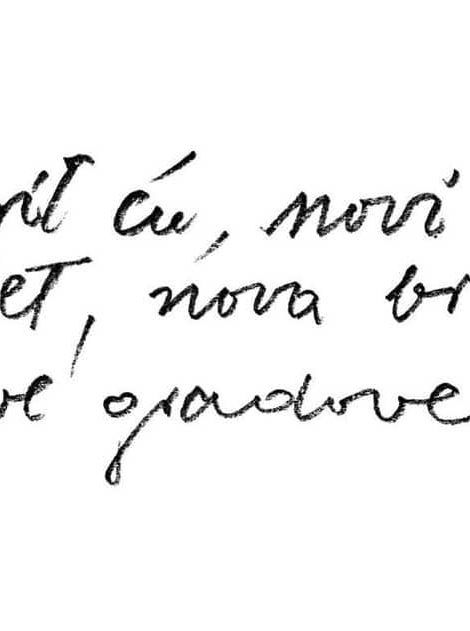 rit ću, novi
jet, nova br
ve gradove